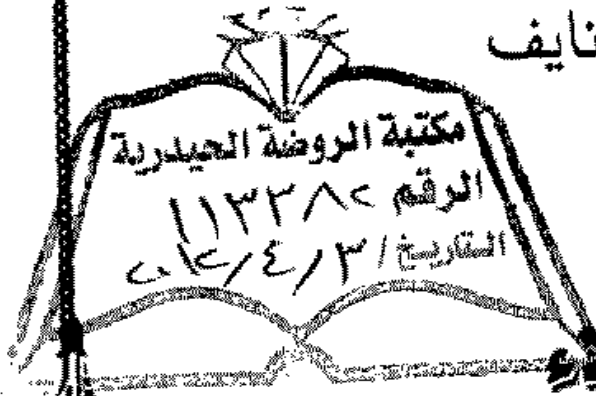 نايف
مكتبة الروضة الحيدرية
الرقم ١١٣٣٨٢
التاريخ / ٣/٤/٢٠١٢